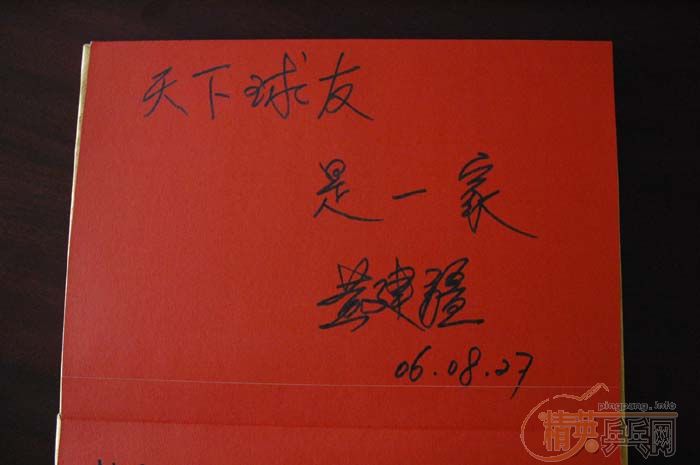 天下球友
是一家
黄建疆
06.08.27
pingpang.info
精英乒乓网